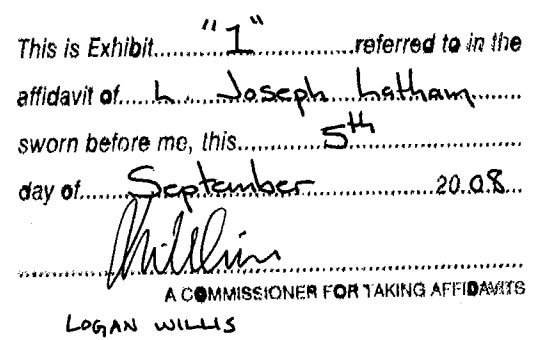 This is Exhibit "1" referred to in the
affidavit of L. Joseph Latham
sworn before me, this 5th
day of September 2008
A COMMISSIONER FOR TAKING AFFIDAVITS
LOGAN WILLIS